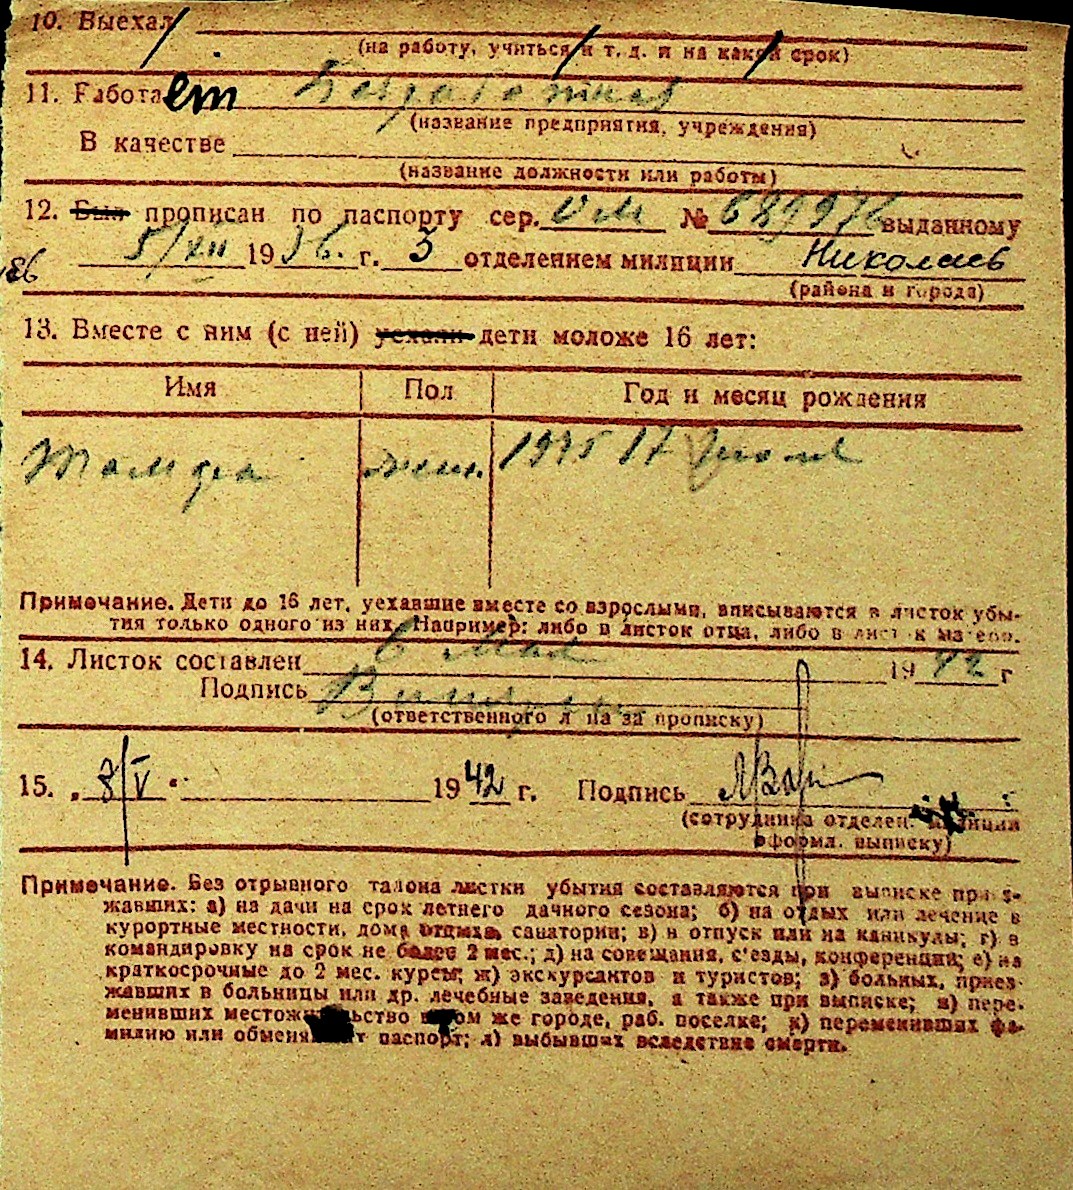 10. Выехал
(на работу, учиться и т. д. и на какой срок)
11. Работает
(название предприятия, учреждения)
В качестве
(название должности или работы)
12. Был прописан по паспорту сер. № выданному
5/XII 1936. г. 5 отделением милиции Николаев
(района и города)
13. Вместе с ним (с ней) уехали дети моложе 16 лет:
Имя Пол Год и месяц рождения
жен. 1935 17
Примечание. Дети до 16 лет, уехавшие вместе со взрослыми, вписываются в листок убы-
тия только одного из них. Например: либо в листок отца, либо в листок матери.
14. Листок составлен 6 мая 1942 г
Подпись
(ответственного лица за прописку)
15. „8/V “ 1942 г. Подпись
(сотрудника отделен. милиции
оформл. выписку)
Примечание. Без отрывного талона листки убытия составляются при выписке приез-
жавших: а) на дачи на срок летнего дачного сезона; б) на отдых или лечение в
курортные местности, дома отдыха, санатории; в) в отпуск или на каникулы; г) в
командировку на срок не более 2 мес.; д) на совещания, с'езды, конференции; е) на
краткосрочные до 2 мес. курсы; ж) экскурсантов и туристов; з) больных, приез-
жавших в больницы или др. лечебные заведения, а также при выписке; и) пере-
менивших местожительство в том же городе, раб. поселке; к) переменивших фа-
милию или обменявших паспорт; л) выбывших вследствие смерти.